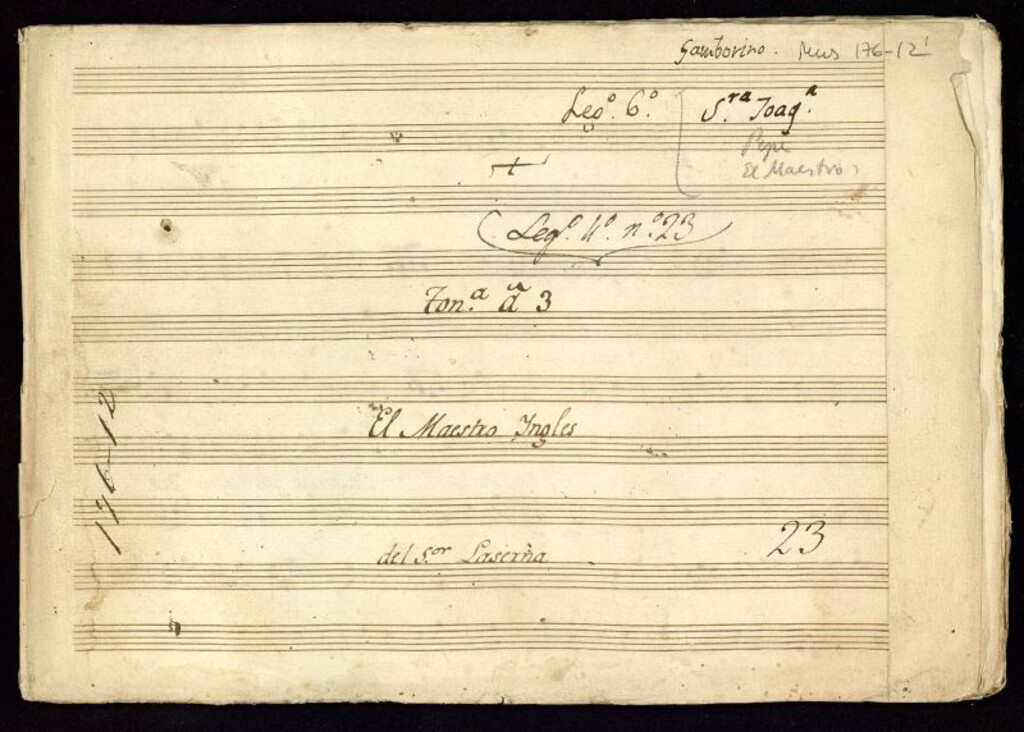 Gamborino. Mus 176-12
Leg.º 6.º
S.ra Joaq.a
Pepe
El Maestro
Leg.º 4.º n.º 23
Ton.a à 3
El Maestro Yngles
176-12
23
del S.or Laserna